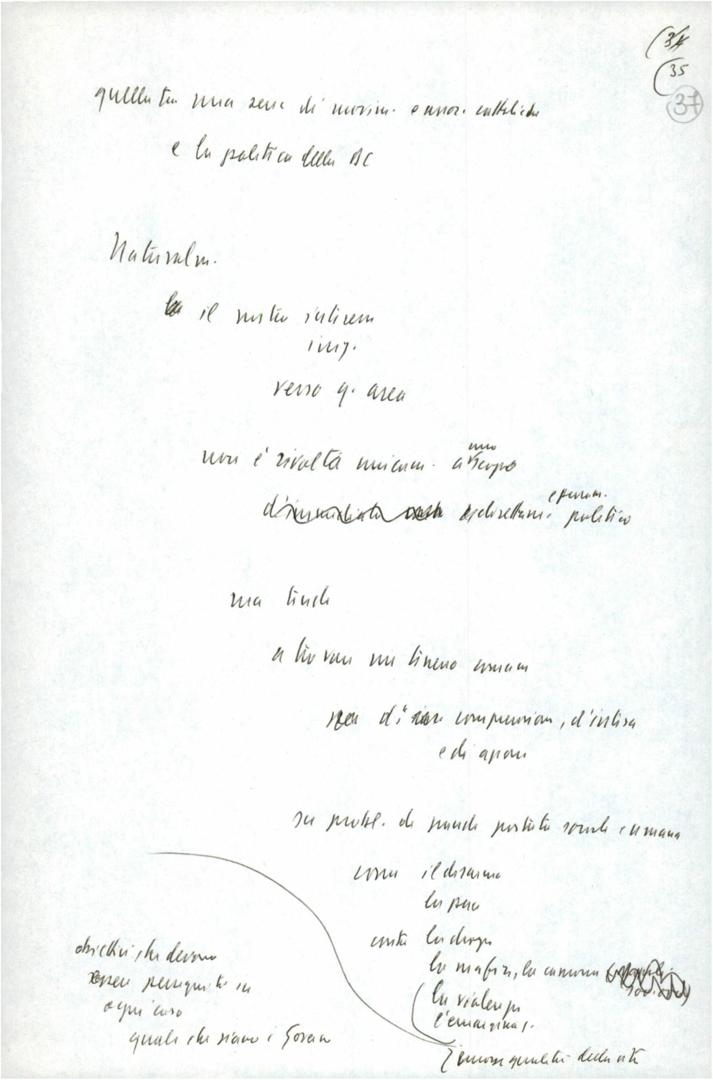 (34
(35
37
quella tra una serie di movim. e assoc. cattoliche
e la politica della DC
Naturalm.
il nostro interesse
verso q. area
non è rivolta unicam. a uno scopo
politico
ma tende
a trovare un terreno comune
di comprensione, d'intesa
e di azione
su probl. di grande portata sociale e umana
come il disarmo
la pace
contro la droga
la mafia, la camorra
la violenza
l'emarginaz.
una nuova qualità della vita
obiettivi che devono
essere perseguiti in
ogni caso
quali che siano i Governi